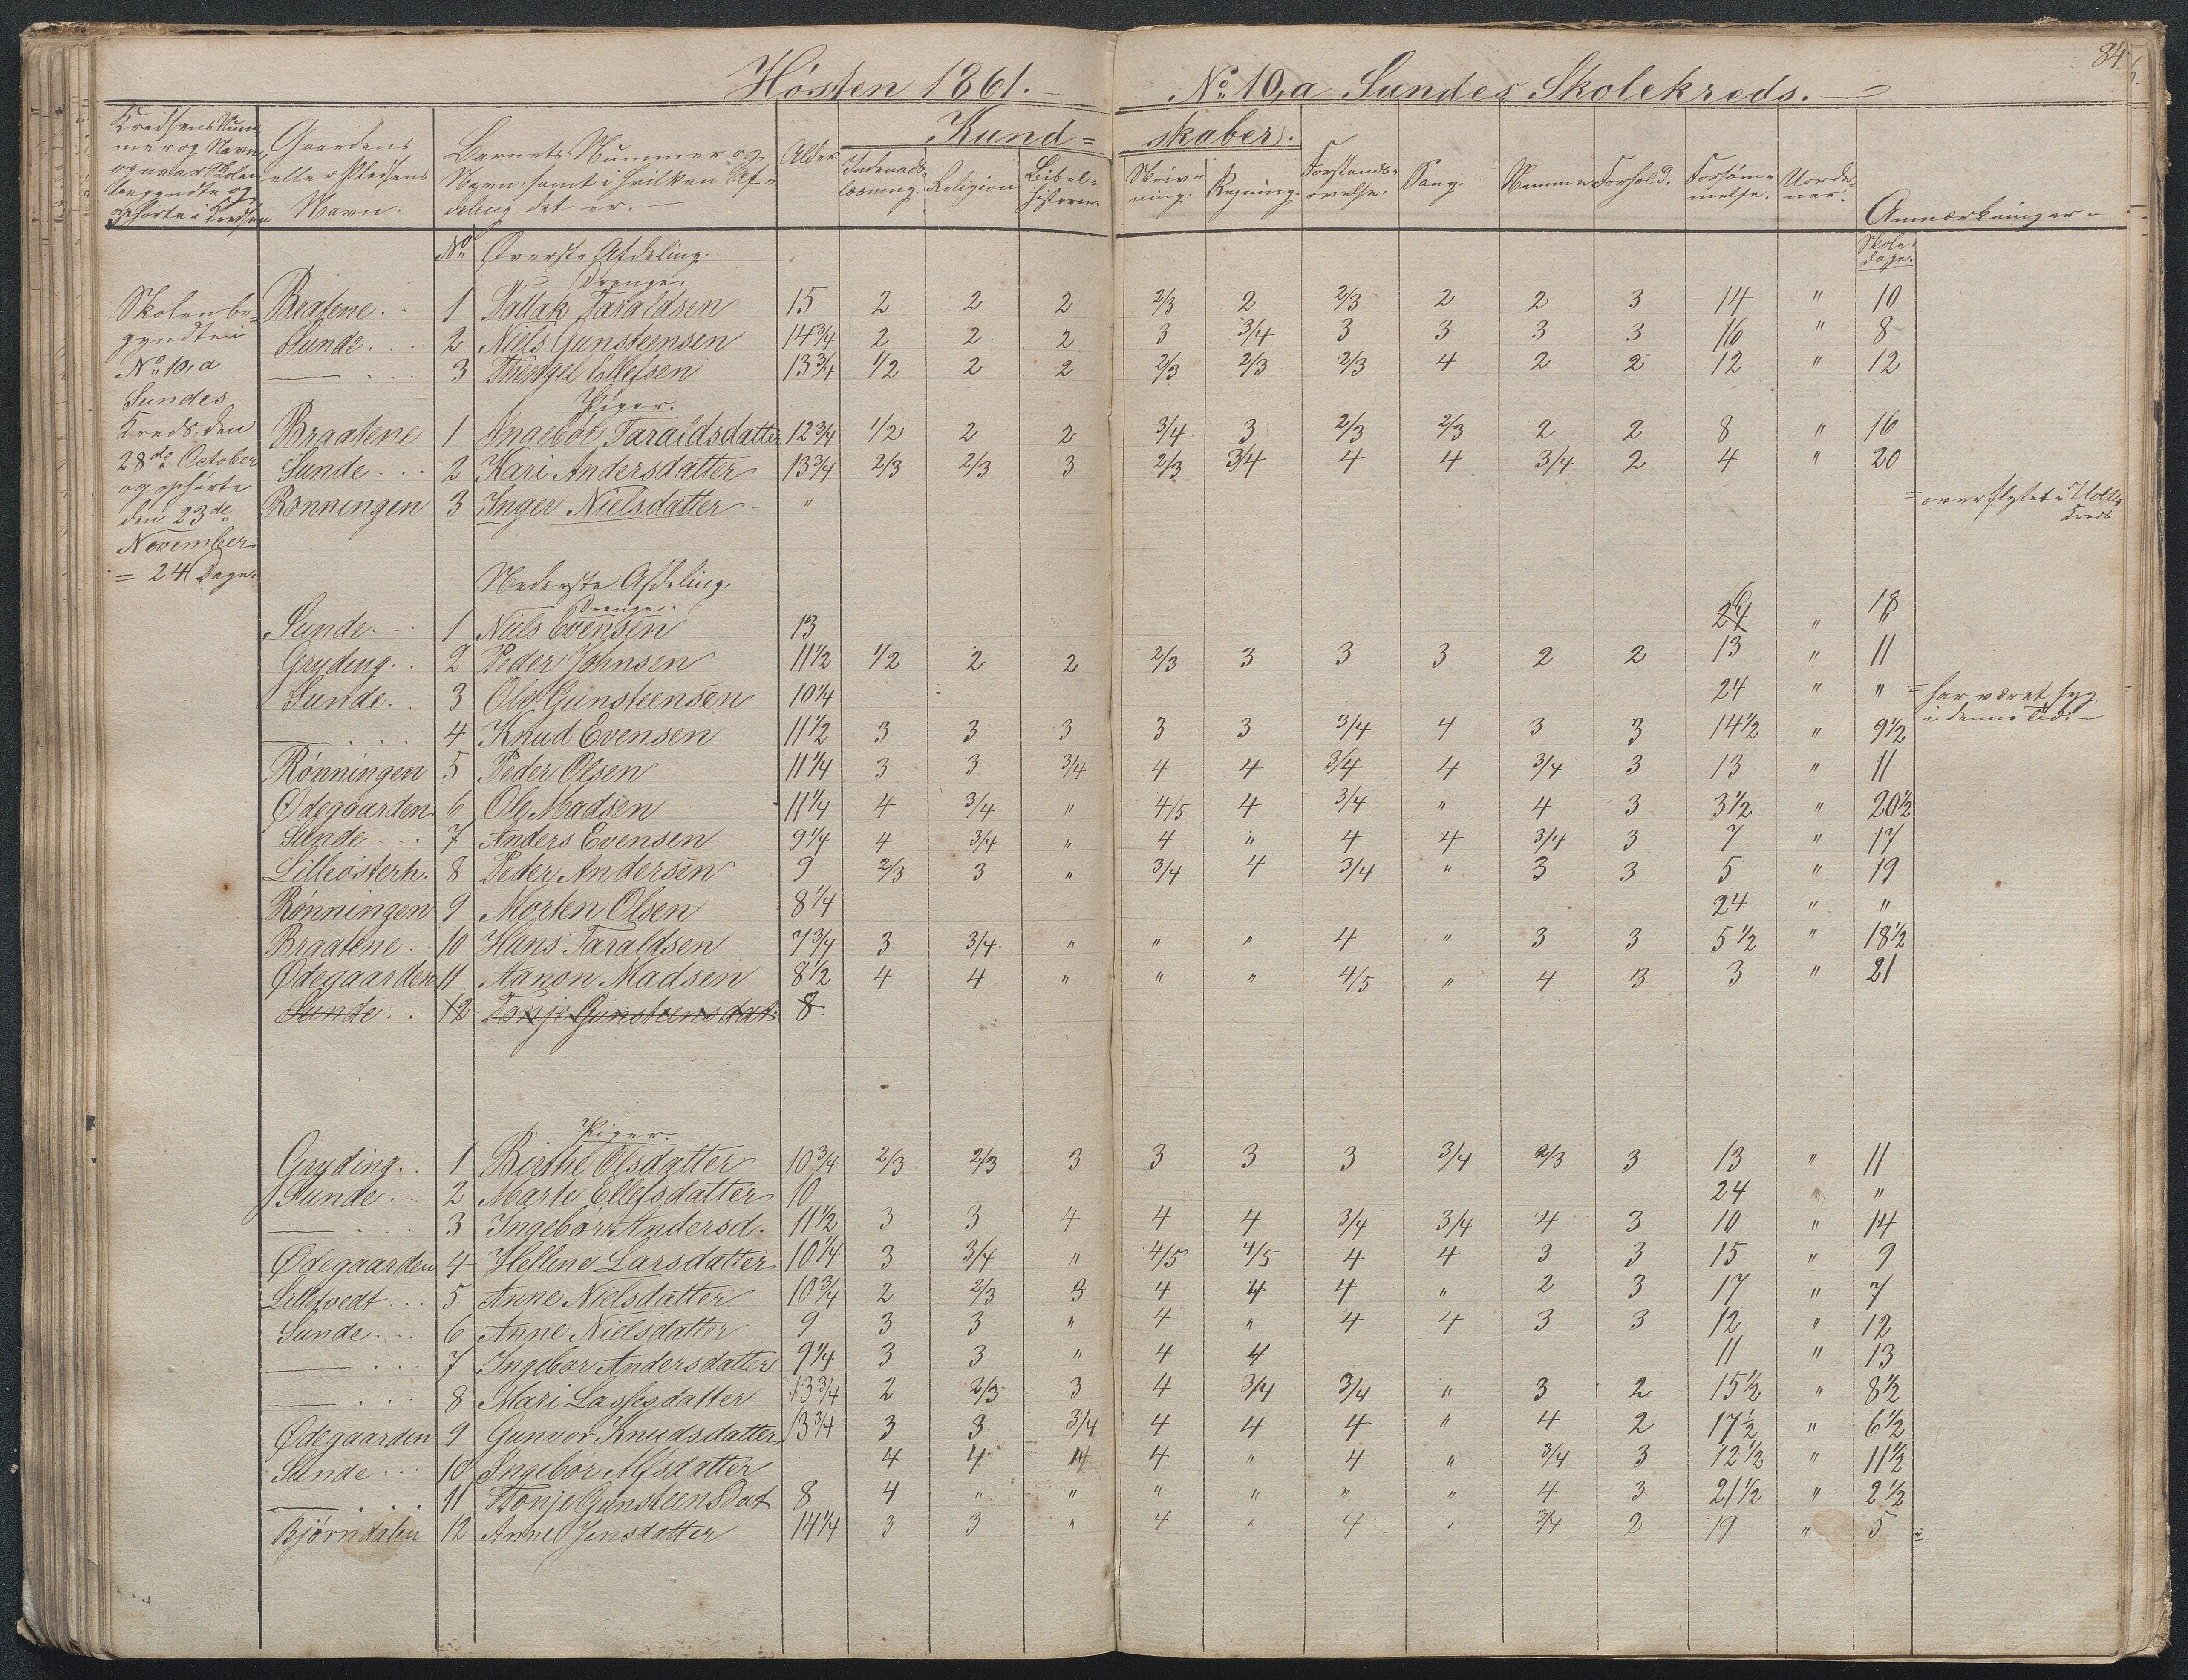 84.
Høsten 1861. — No 10,a Sundes Skolekreds. —
Kredsens Num-
mer og Navn,
og naar Skolen
begyndte og
ophørte i Kredsen
Gaardens
eller Pladsens
Navn.
Barnets Nummer og
Navn, samt i hvilken Af-
deling det er. —
Alder
Kund= skaber.
Indenads-
læsning.
Religion
Bibel-
historie.
Skriv-
ning.
Regning.
Forstands-
øvelse.
Sang.
Nemme
Forhold.
Forsøm-
melse.
Uorde-
ner.
Anmærkninger -
Skole-
dage.
Skolen be-
gyndte i
No 10,a
Sundes
Kreds den
28de October
og ophørte
den 23de
November
= 24 Dage.
No Øverste Afdeling.
Drenge.
Bratene. . 1 Tallak Taraldsen 15 2 2 2 2/3 2 2/3 2 2 3 14 " 10
Sunde. . . 2 Niels Gunsteensen 14 3/4 2 2 2 3 3/4 3 3 3 3 16 " 8
— . . 3 Ellefsen 13 3/4 1/2 2 2 2/3 2/3 2/3 4 2 2 12 " 12
Piger.
Braatene 1 Ingebor Taraldsdatter 12 3/4 1/2 2 2 3/4 3 2/3 2/3 2 2 8 " 16
Sunde. . . 2 Kari Andersdatter 13 3/4 2/3 2/3 3 2/3 3/4 4 4 3/4 2 4 " 20
Rønningen 3 Inger Nielsdatter - " = overflyttet Kreds
Nederste Afdeling.
Drenge.
Sunde. - . 1 Niels Evensen 13 24 6 " 18
Gryding. . 2 Peder Johnsen 11 1/2 1/2 2 2 2/3 3 3 3 2 2 13 " 11
Sunde. . 3 Ole Gunsteensen 10 1/4 24 " " = har været syg
i denne Tid. —
— . . . 4 Knud Evensen 11 1/2 3 3 3 3 3 3/4 4 3 3 14 1/2 " 9 1/2
Rønningen 5 Peder Olsen 11 1/4 3 3 3/4 4 4 3/4 4 3/4 3 13 " 11
Ødegaarden 6 Ole Madsen 11 1/4 4 3/4 " 4/5 4 3/4 " 4 3 3 1/2 " 20 1/2
Sunde . . . 7 Anders Evensen 9 1/4 4 3/4 " 4 " 4 4 3/4 3 7 " 17
Lilleøsterh. 8 Peder Andersen 9 2/3 3 " 3/4 4 3/4 " 3 3 5 " 19
Rønningen 9 Morten Olsen 8 1/4 24 " "
Braatene . . 10 Hans Taraldsen 7 3/4 3 3/4 " " " 4 " 3 3 5 1/2 " 18 1/2
Ødegaarden 11 Aanon Madsen 8 1/2 4 4 " " " 4/5 " 4 3 3 " 21
Sunde . . 12 Tonje Gunsteensdat: 8
Piger.
Gryding. . 1 Birthe Olsdatter 10 3/4 2/3 2/3 3 3 3 3 3/4 2/3 3 13 " 11
Sunde. - 2 Marte Ellefsdatter 10 24 " "
— . . 3 Ingebor Andersd. 11 1/2 3 3 4 4 4 3/4 3/4 4 3 10 " 14
Ødegaarden 4 Hellene Larsdatter 10 1/4 3 3/4 " 4/5 4/5 4 4 3 3 15 " 9
Lillefvedt . . . 5 Anne Nielsdatter 10 3/4 2 2/3 3 4 4 4 " 2 3 17 " 7
Sunde. . . 6 Anne Nielsdatter 9 3 3 " 4 " 4 4 3 3 12 " 12
— . . 7 Ingebor Andersdatter 9 1/4 3 3 " 4 4 11 " 13
— . . . 8 Mari Lassesdatter 13 3/4 2 2/3 3 4 3/4 3/4 " 3 2 15 1/2 " 8 1/2
Ødegaarden 9 Gunvor Knudsdatter 13 3/4 3 3 3/4 4 4 4 " 4 2 17 1/2 " 6 1/2
Sunde . . . 10 Ingebor Alfsdatter 4 4 4 4 " 4 " 3/4 3 12 1/2 " 11 1/2
— . . . . 11 Tonje Gunsteensdat 8 4 " " " " " " 4 3 21 1/2 " 2 1/2
Bjørndalen 12 Anne Jensdatter 14 1/4 3 3 " 4 " 4 " 3/4 2 19 " 5 =